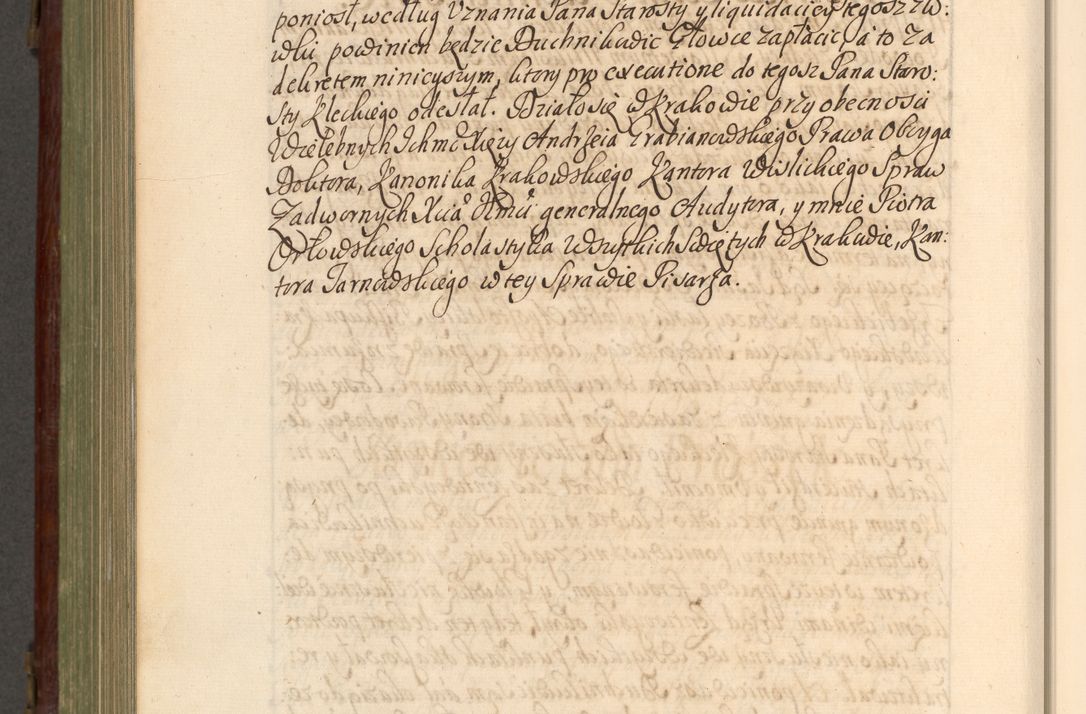 poniosł, według Uznania Pana Starosty y liquidaciey tegosz zło:
wki powinien będzie Duchnikowic Głowce zapłacić, a to za
dekretem ninieyszym, ktory pro executione do tegosz Pana Staro:
sty Kleckiego odesłał. Działo się w Krakowie przy obecnosci
Wielebnych Ichmć Xięży Andrzeia Grabianowskiego Prawa Oboyga
Doktora, Kanonika Krakowskiego Kantora Wislickiego Spraw
Zadwornych Xcia Jmci generalnego Audytora, y mnie Piotra
Orłowskiego Scholastyka Wszytkich Swiętych w Krakowie, Kan:
tora Tarnowskiego w tey Sprawie Pisarza.